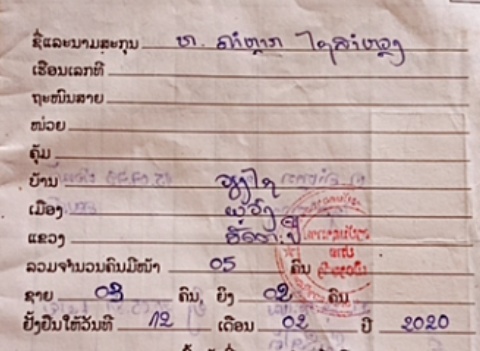 ຊື່ແລະນາມສະກຸນ ທ. ຄຳຫຼາກ ໄຊຄຳຫວງ
ເຮືອນເລກທີ
ຖະໜົນສາຍ
ໜ່ວຍ
ຄຸ້ມ
ບ້ານ ວຽງໄຊ
ເມືອງ ພູວົງ
ແຂວງ ອັດຕະປື
ລວມຈຳນວນຄົນມີໜ້າ 05 ຄົນ
ຊາຍ 03 ຄົນ, ຍິງ 02 ຄົນ
ຢັ້ງຢືນໃຫ້ວັນທີ 12 ເດືອນ 02 ປີ 2020